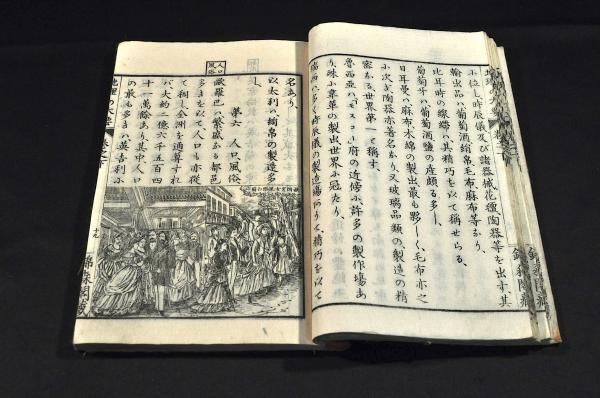 に位し時辰儀及び諸器械花氈陶器等を出す其
輸出品ハ葡萄酒絹帛毛布麻布等なり
比耳時の線緞ハ其精巧を以て称せらる
葡萄牙ハ葡萄酒鹽の産頗る多し
日耳曼ハ麻布木綿の製出最も夥しく毛布亦之
に次ぎ陶器亦著名なり又玻璃品類の製造の精
密なる世界第一と称す
魯西亞ハ「モスコー」府の近傍に許多の製作場あ
り殊に韋革の製出世界に冠たり
瑞西ハ多く時辰儀の製造場ありて精巧を以て
名あり
以太利ハ絹帛の製造多
し
人口
風俗
第六 人口風俗
歐羅巴ハ繁盛なる都邑
多きを以て人口も亦従
て稠し全洲を通算すれ
バ大約二億六千五百四
十一萬餘あり其中人口
の最も多きハ英吉利に